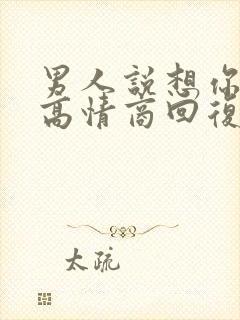 男人説想你
高情商回復
太疏